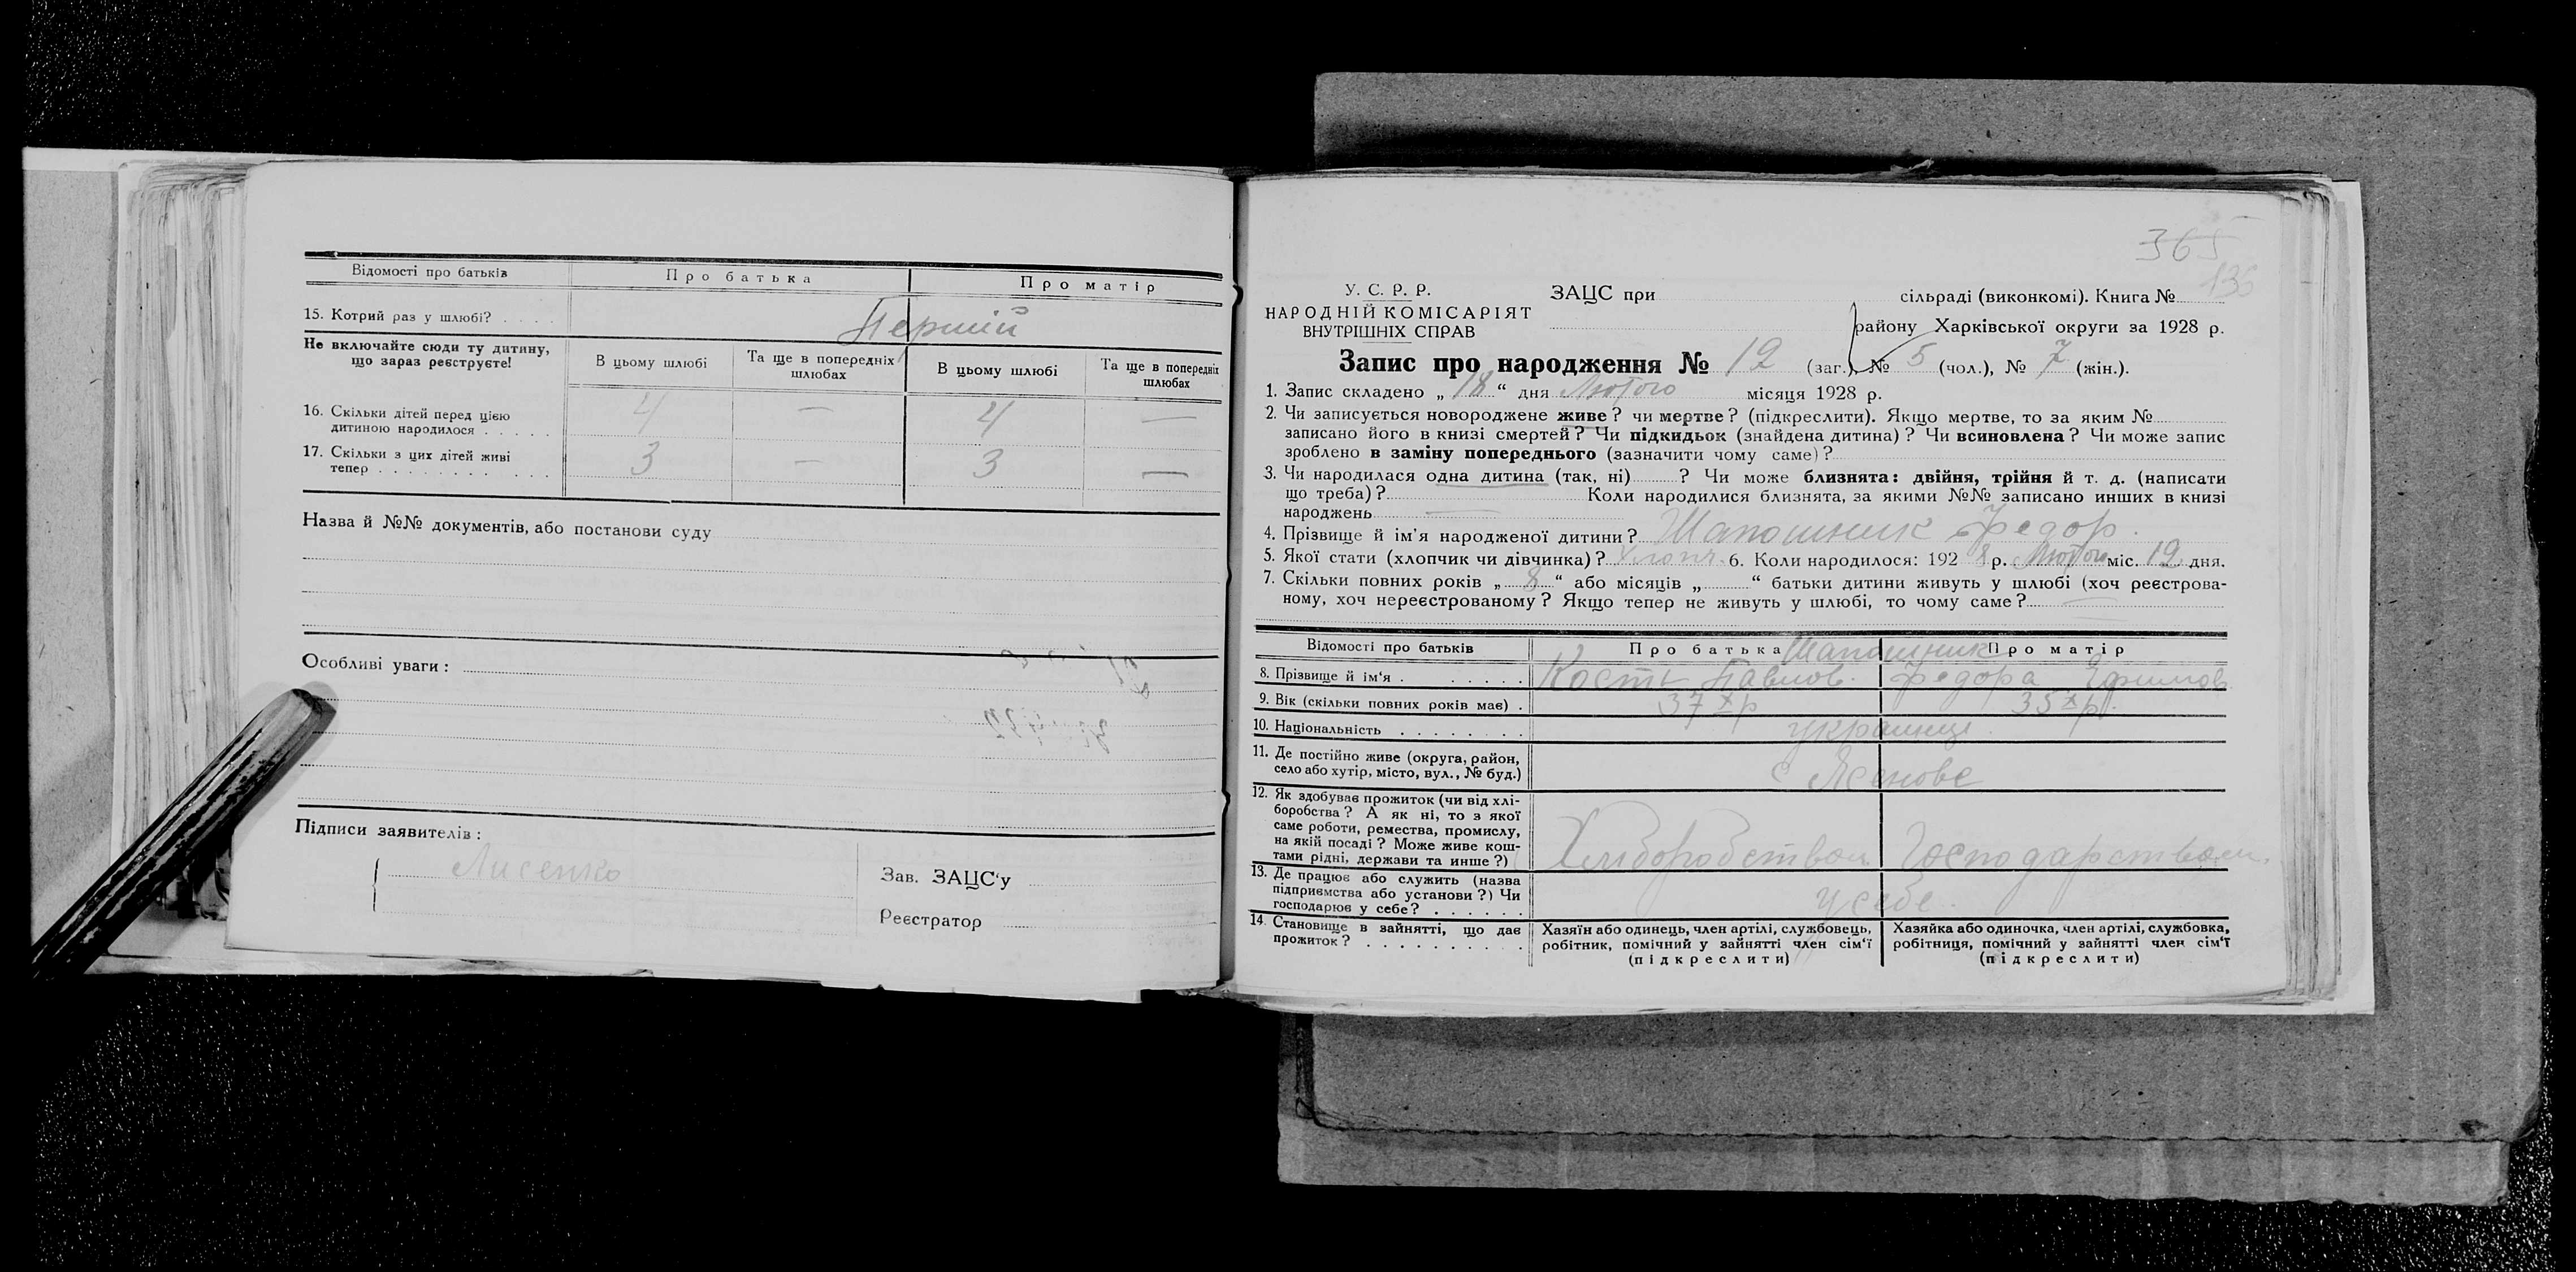 Відомості про батьків Про батька Про матір
15. Котрий раз у шлюбі? Перший
Не включайте сюди ту дитину, що зараз реєструєте! В цьому шлюбі Та ще в попередніх шлюбах В цьому шлюбі Та ще в попередніх шлюбах
16. Скільки дітей перед цією
дитиною народилося 4 — 4 —
17. Скільки з цих дітей живі
тепер 3 — 3 —
Назва й №№ документів, або постанови суду
Особливі уваги:
Підписи заявителів:
Лисенко
Зав. ЗАЦС'у
Реєстратор
365
136
У. С. Р. Р.
НАРОДНІЙ КОМІСАРІЯТ
ВНУТРІШНІХ СПРАВ
ЗАЦС при сільраді (виконкомі). Книга №
району Харківської округи за 1928 р.
Запис про народження № 12 (заг.), № 5 (чол.), № 7 (жін.).
1. Запис складено „18“ дня Лютого місяця 1928 р.
2. Чи записується новороджене живе? чи мертве? (підкреслити). Якщо мертве, то за яким №
записано його в книзі смертей? Чи підкидьок (знайдена дитина)? Чи всиновлена? Чи може запис
зроблено в заміну попереднього (зазначити чому саме)?
3. Чи народилася одна дитина (так, ні)? Чи може близнята: двійня, трійня й т. д. (написати
що треба)? Коли народилися близнята, за якими №№ записано инших в книзі
народжень —
4. Прізвище й ім'я народженої дитини? Шапошник Федор.
5. Якої стати (хлопчик чи дівчинка)? хлопч. 6. Коли народилося: 1928 р. Лютого міс. 12 дня.
7. Скільки повних років „8“ або місяців „ “ батьки дитини живуть у шлюбі (хоч реєстрова-
ному, хоч нереєстрованому? Якщо тепер не живуть у шлюбі, то чому саме? —
Відомості про батьків Про батька Про матір
Шапошник
8. Прізвище й ім'я Кость Павлов. Федора Ефимов
9. Вік (скільки повних років має) 37 р 35 р.
10. Національність українці
11. Де постійно живе (округа, район,
село або хутір, місто, вул., № буд.) с Ясенове
12. Як здобуває прожиток (чи від хлі-
боробства? А як ні, то з якої
саме роботи, ремества, промислу,
на якій посаді? Може живе кош-
тами рідні, держави та инше?) Хліборобством Господарством.
13. Де працює або служить (назва
підприємства або установи?) Чи
господарює у себе? у себе.
14. Становище в зайнятті, що дає
прожиток?
Хазяїн або одинець, член артілі, службовець,
робітник, помічний у зайнятті член сім'ї
(підкреслити)
Хазяйка або одиночка, член артілі, службовка,
робітниця, помічний у зайнятті член сім'ї
(підкреслити)